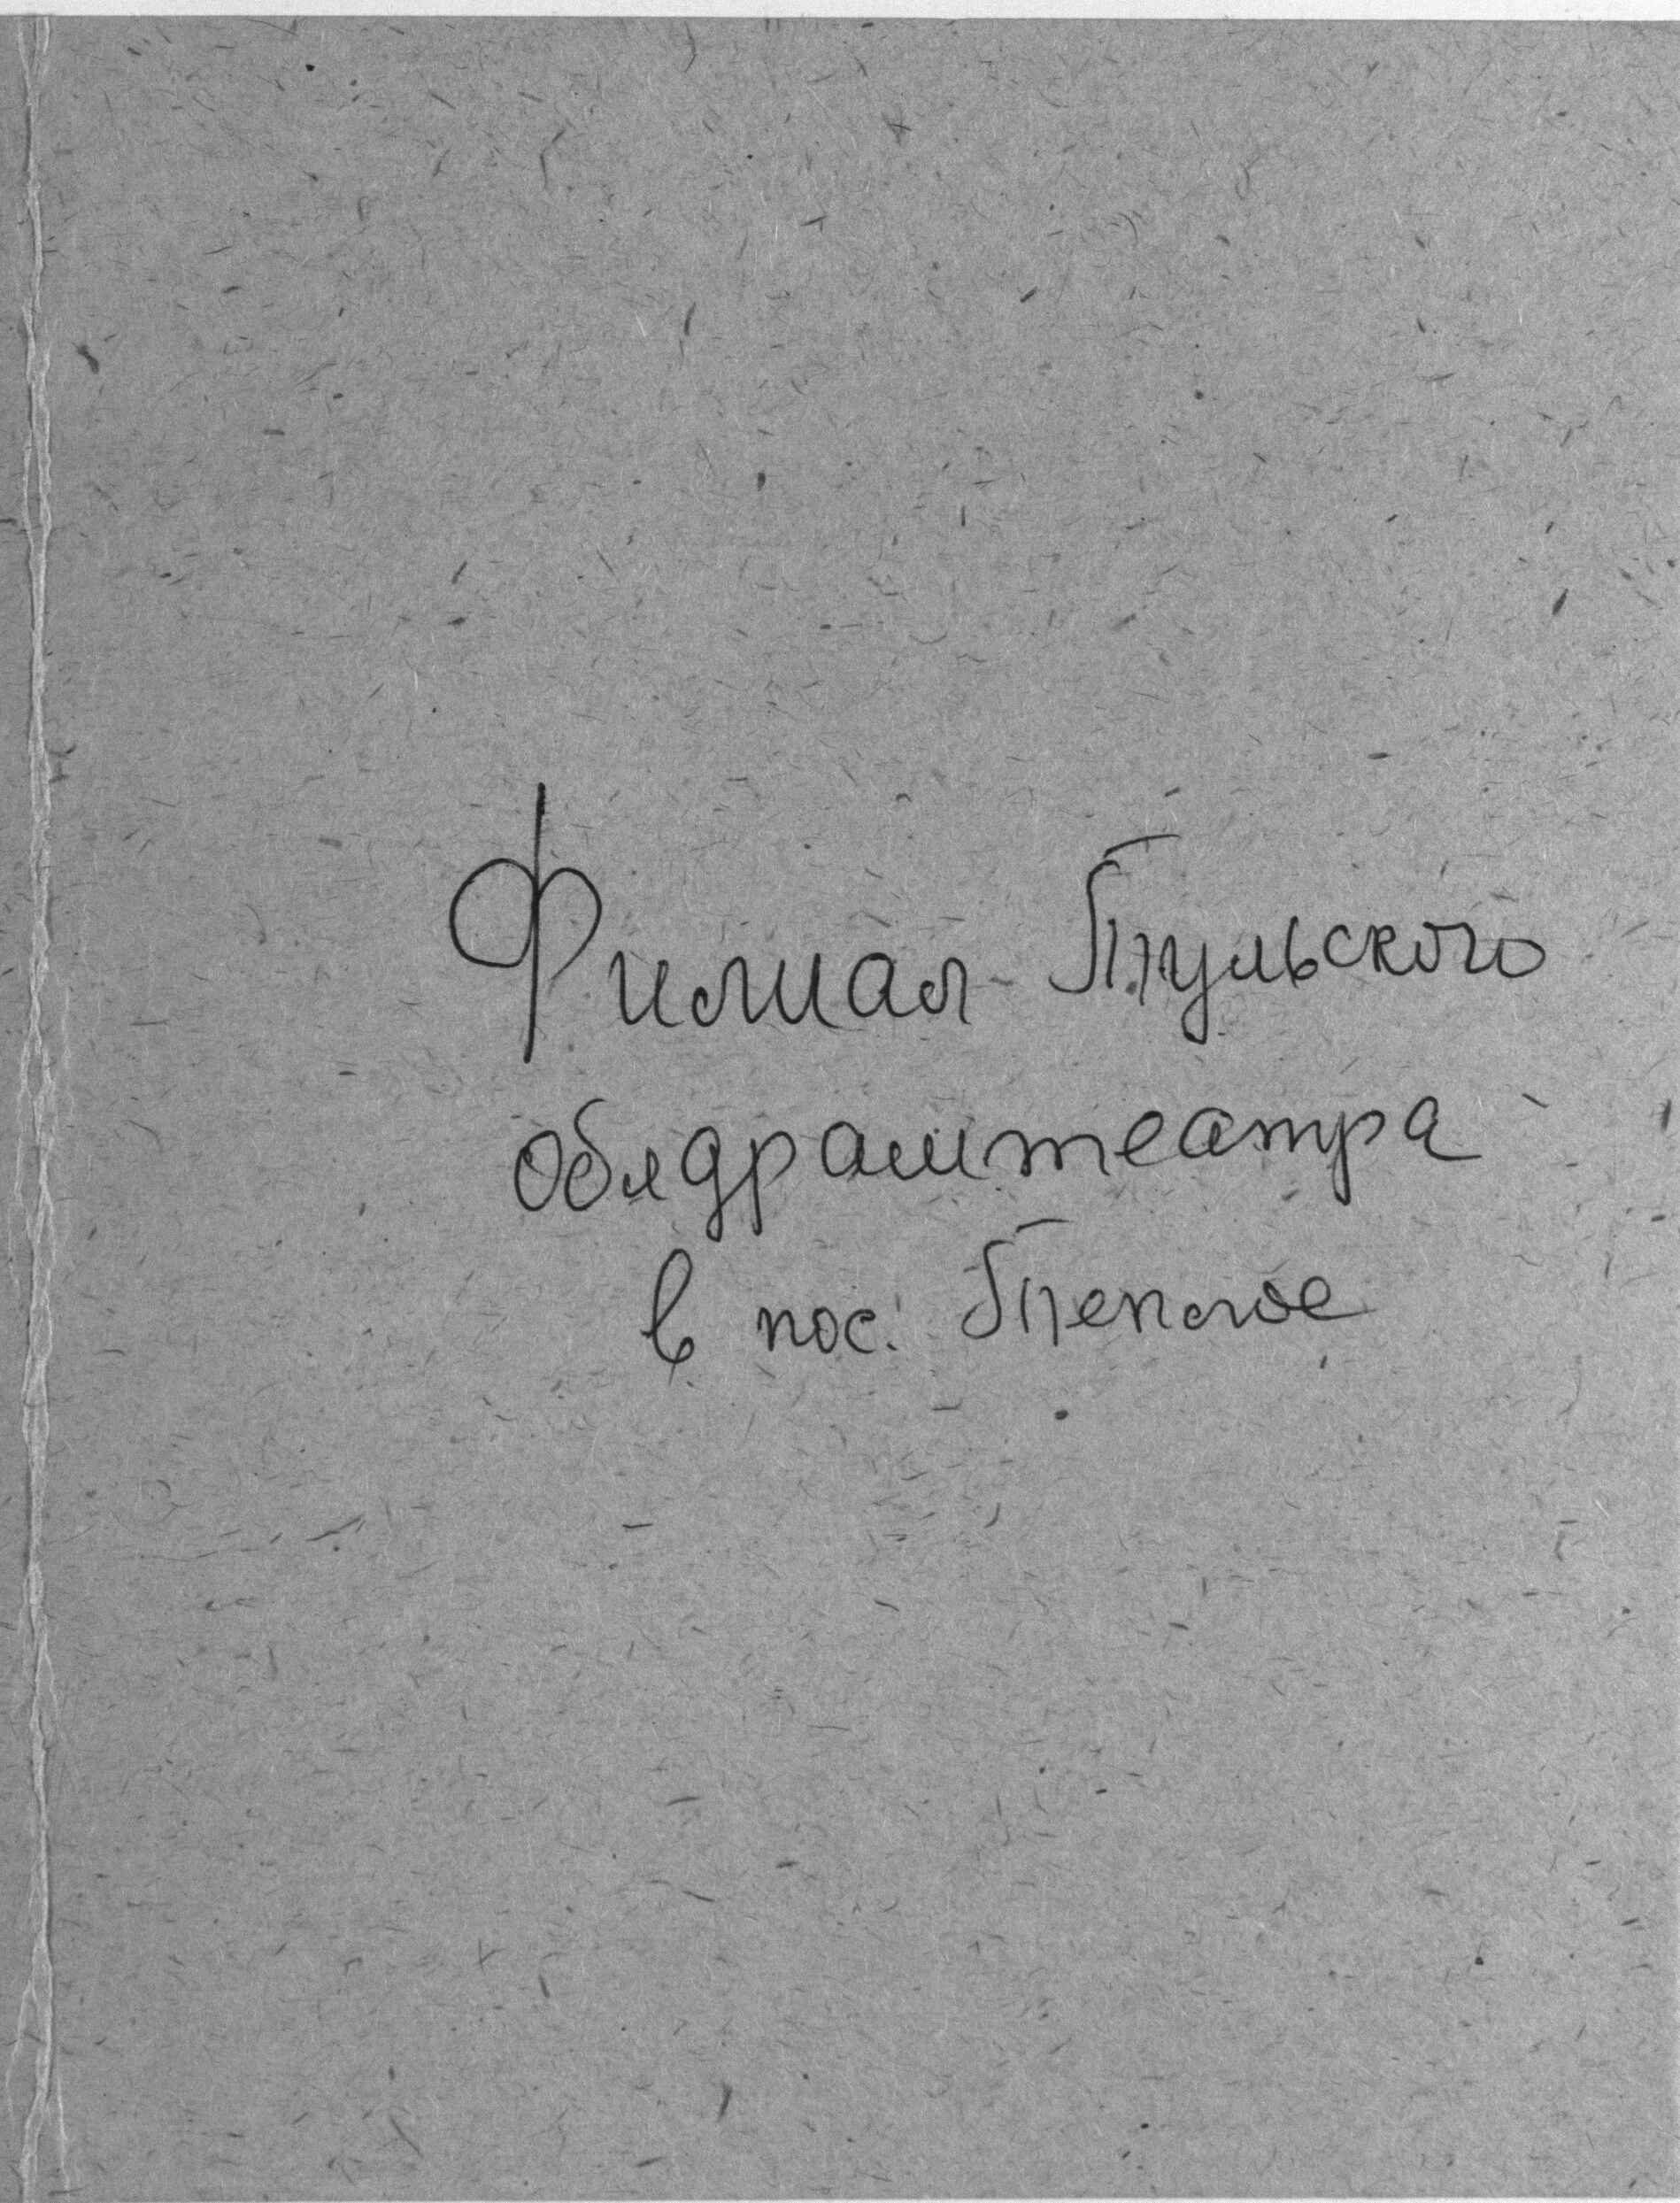 Филиал Тульского
облдрамтеатра
в пос. Теплое